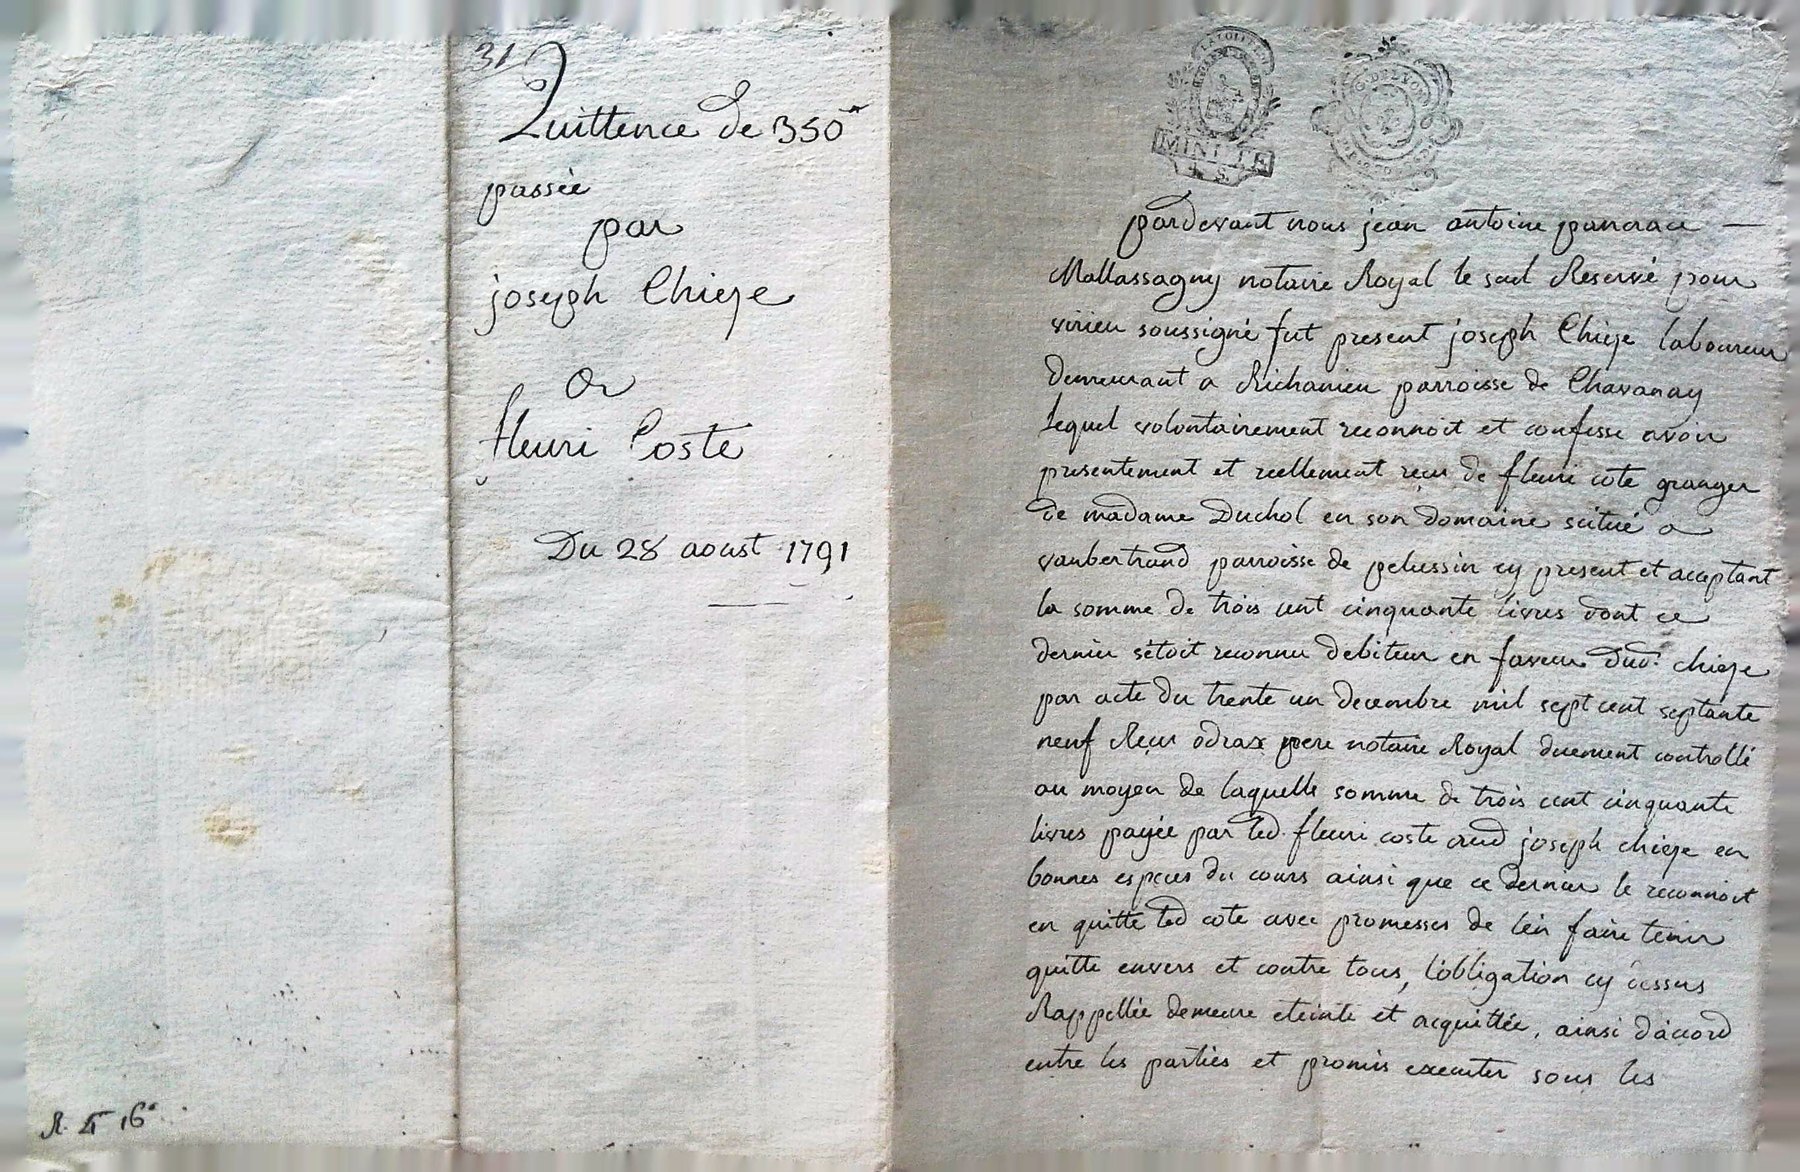 31
Quittence de 350#
passée
par
joseph Chieze
a
fleuri Coste
Du 28 aoust 1791
R. 4# 16s
MINUTE
4. S.
pardevant nous jean antoine pancrace
Mallassagny notaire Royal le seul Reservé pour
virieu soussigné fut present joseph Chieze laboureur
demeurant a Richanieu parroisse de Chavanay
lequel volontairement reconnoit et confesse avoir
presentement et reellement reçu de fleuri cote granger
de madame Duchol en son domaine scitué a
vaubertrand parroisse de pelussin cy present et acceptant
la somme de trois cent cinquante livres dont ce
dernier sétoit reconnu debiteur en faveur dud. chieze
par acte du trente un decembre mil sept cent septante
neuf Reçu odrax pere notaire Royal duement controllé
au moyen de laquelle somme de trois cent cinquante
livres payée par led. fleuri coste aud joseph chieze en
bonnes especes du cours ainsi que ce dernier le reconnoit
en quitte led cote avec promesses de l'en faire tenir
quitte envers et contre tous, l'obligation cy dessus
Rappellée demeure eteinte et acquittée, ainsi d'accord
entre les parties et promis executer sous les